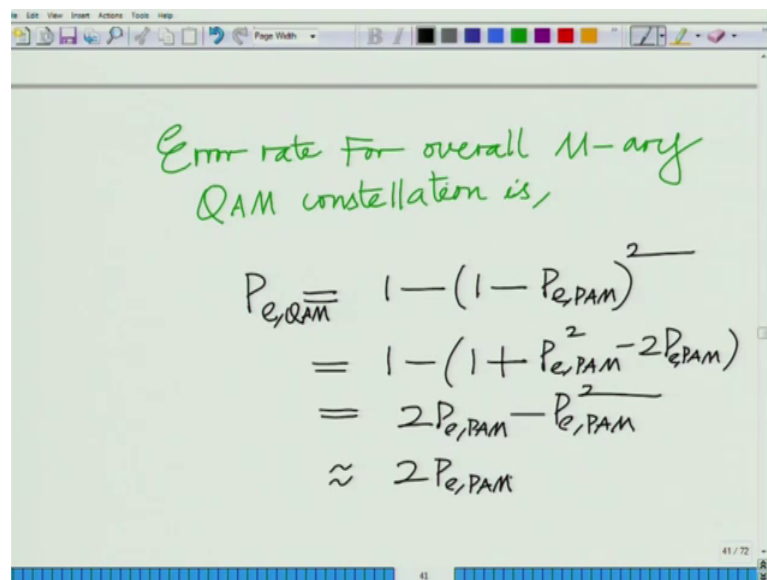 Edit View Insert Actions Tools Help
Page Width
B I
Error rate For overall M-ary
QAM constellation is,
P_{e,QAM} = 1 - (1 - P_{e,PAM})^2
= 1 - (1 + P_{e,PAM}^2 - 2P_{e,PAM})
= 2P_{e,PAM} - P_{e,PAM}^2
≈ 2P_{e,PAM}
41 / 72
41